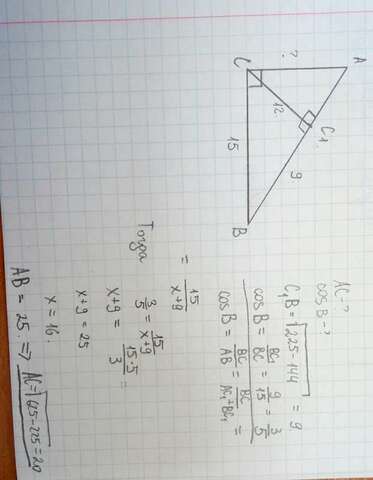 A
C
B
C1
?
12
9
15
AC-?
cosB-?
C₁B = √225-144 = 9
cosB = BC₁/BC = 9/15 = 3/5
cosB = BC/AB = BC/AC₁+BC₁ =
= 15/x+9
Тогда 3/5 = 15/x+9
x+9 = 15·5/3
x+9 = 25
x = 16.
AB = 25. ⇒ AC = √625-225 = 20